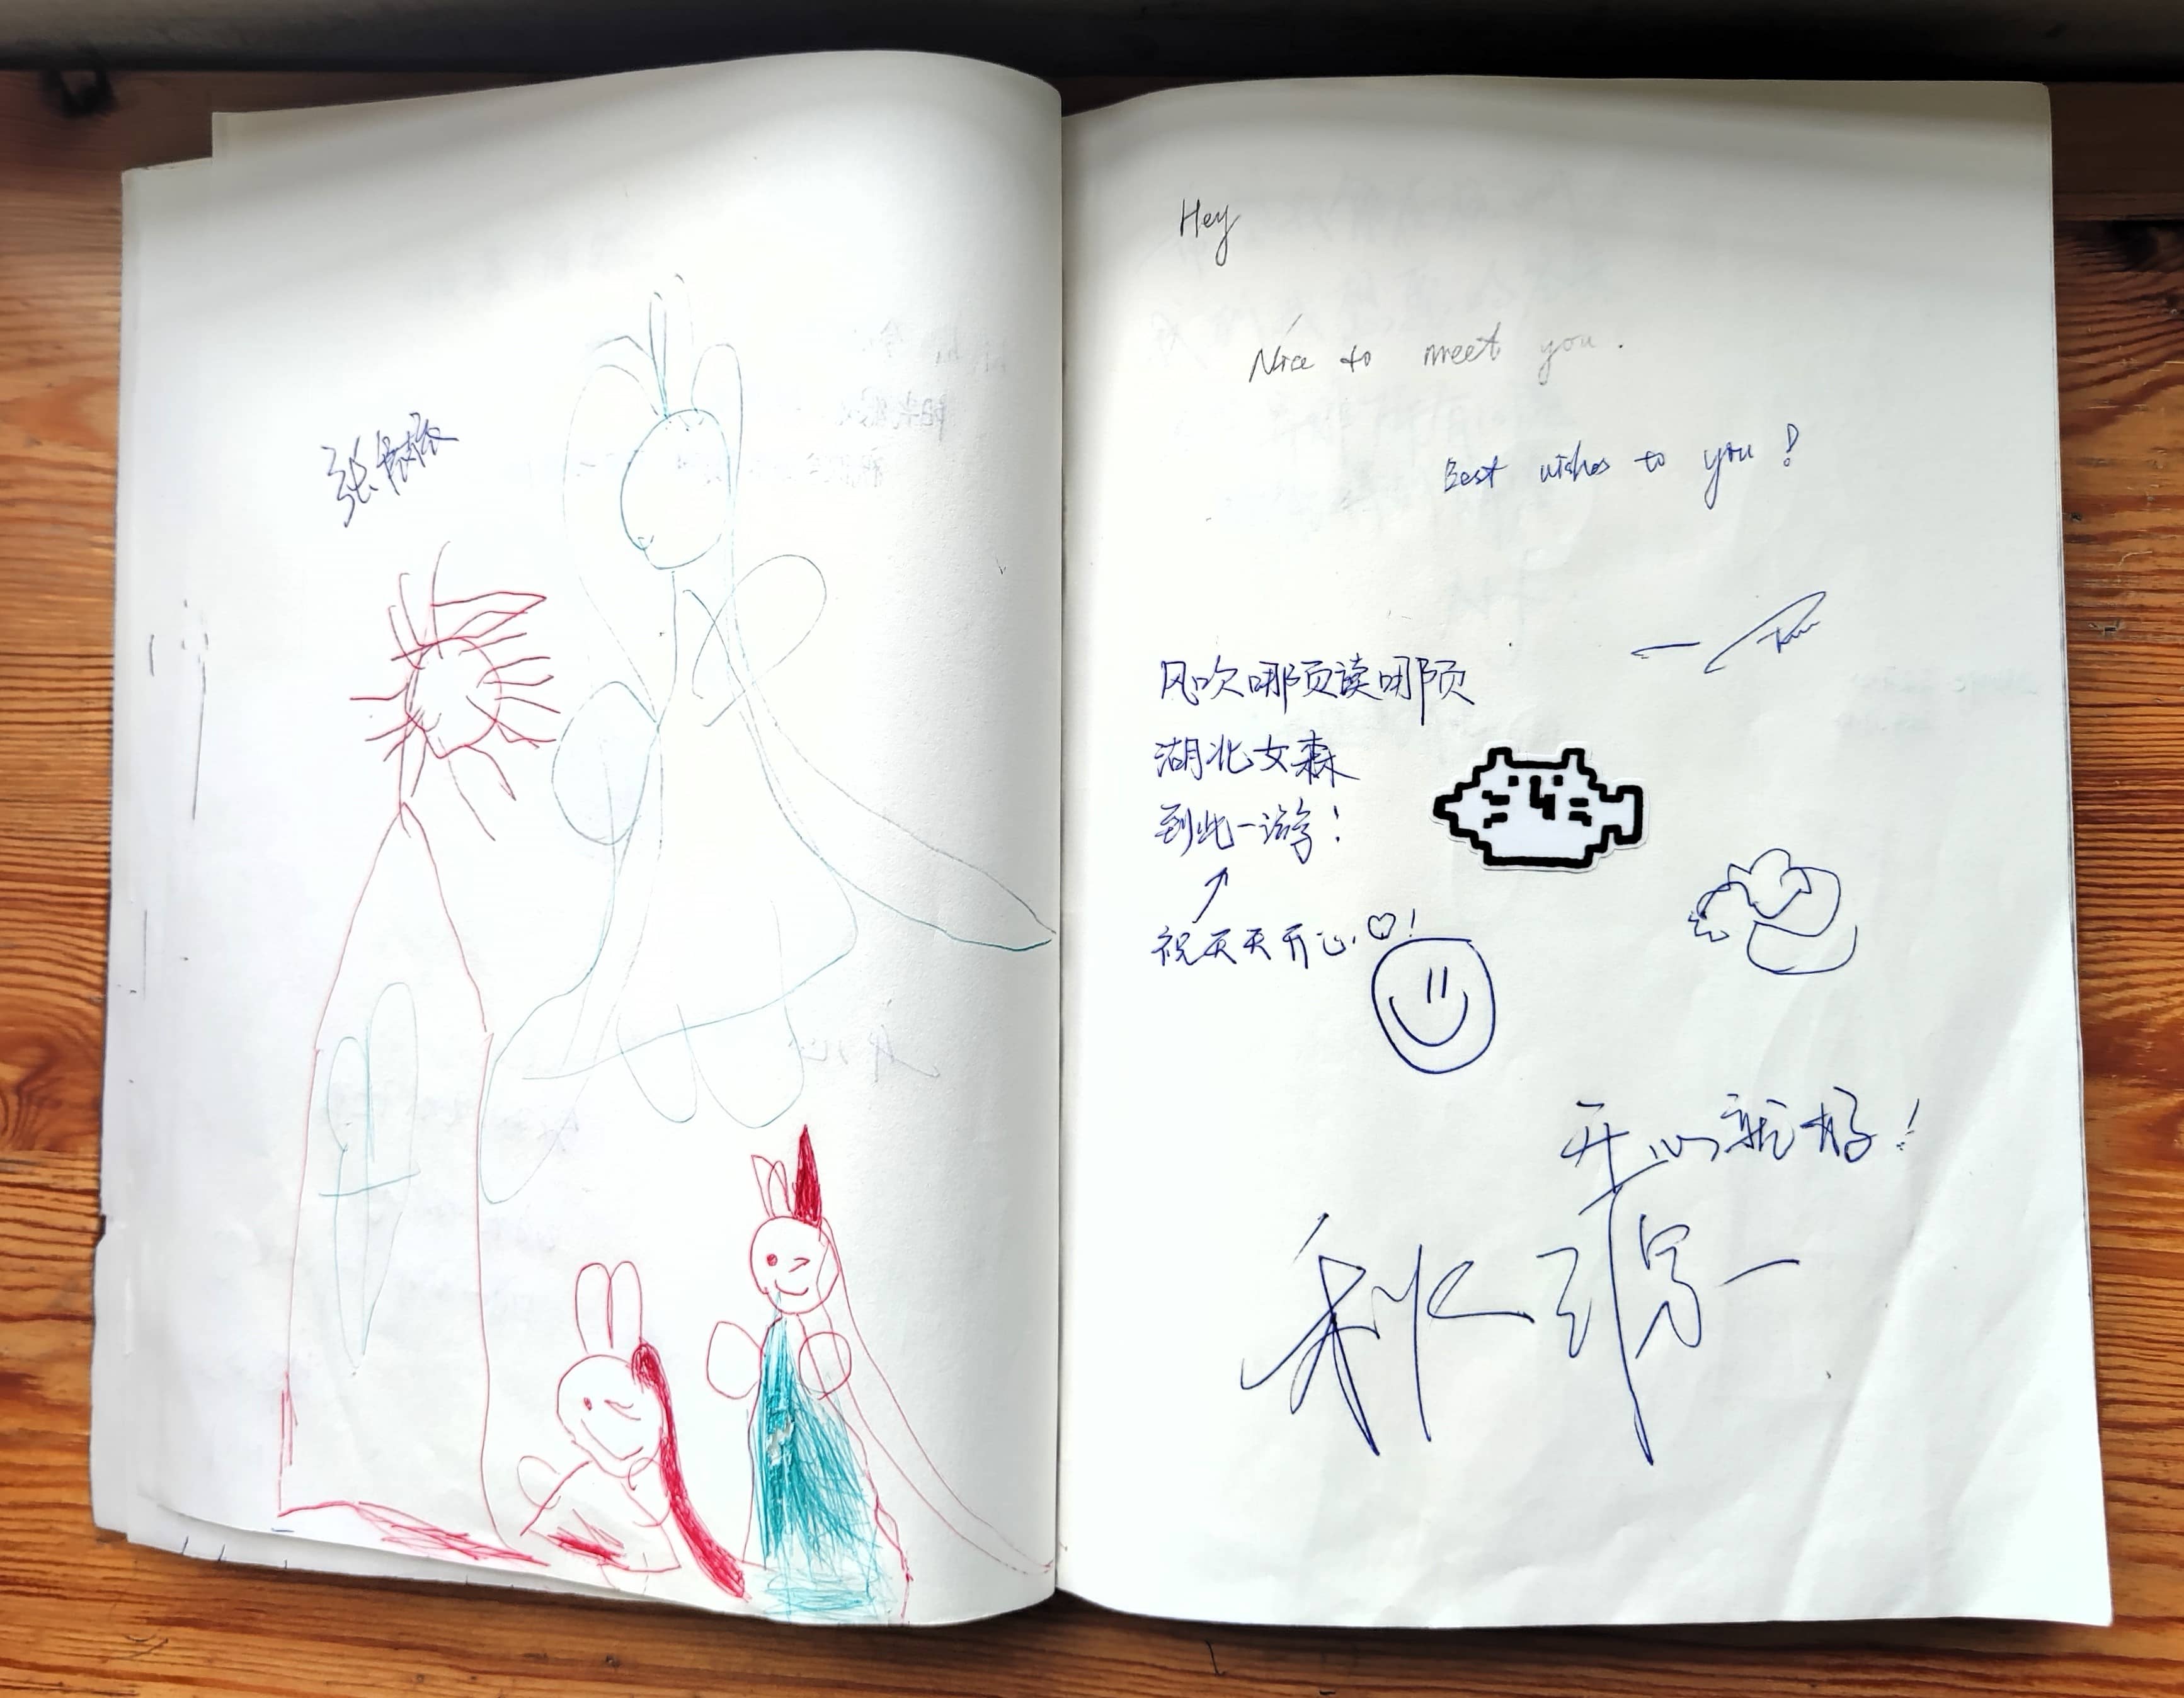 Hey
Nice to meet you.
Best wishes to you!
风吹哪页读哪页
湖北女森
到此一游!
祝天天开心♡!
开心就好!